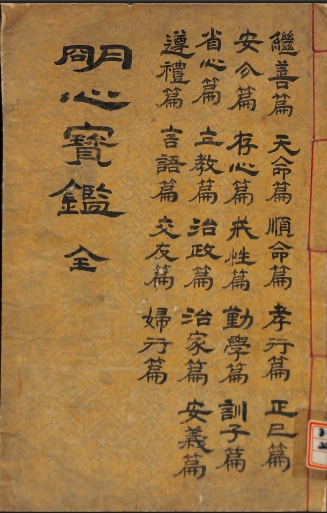 繼善篇 天命篇 順命篇 孝行篇 正己篇
安分篇 存心篇 戒性篇 勤學篇 訓子篇
省心篇 立教篇 治政篇 治家篇 安義篇
遵禮篇 言語篇 交友篇 婦行篇
明心寶鑑 全